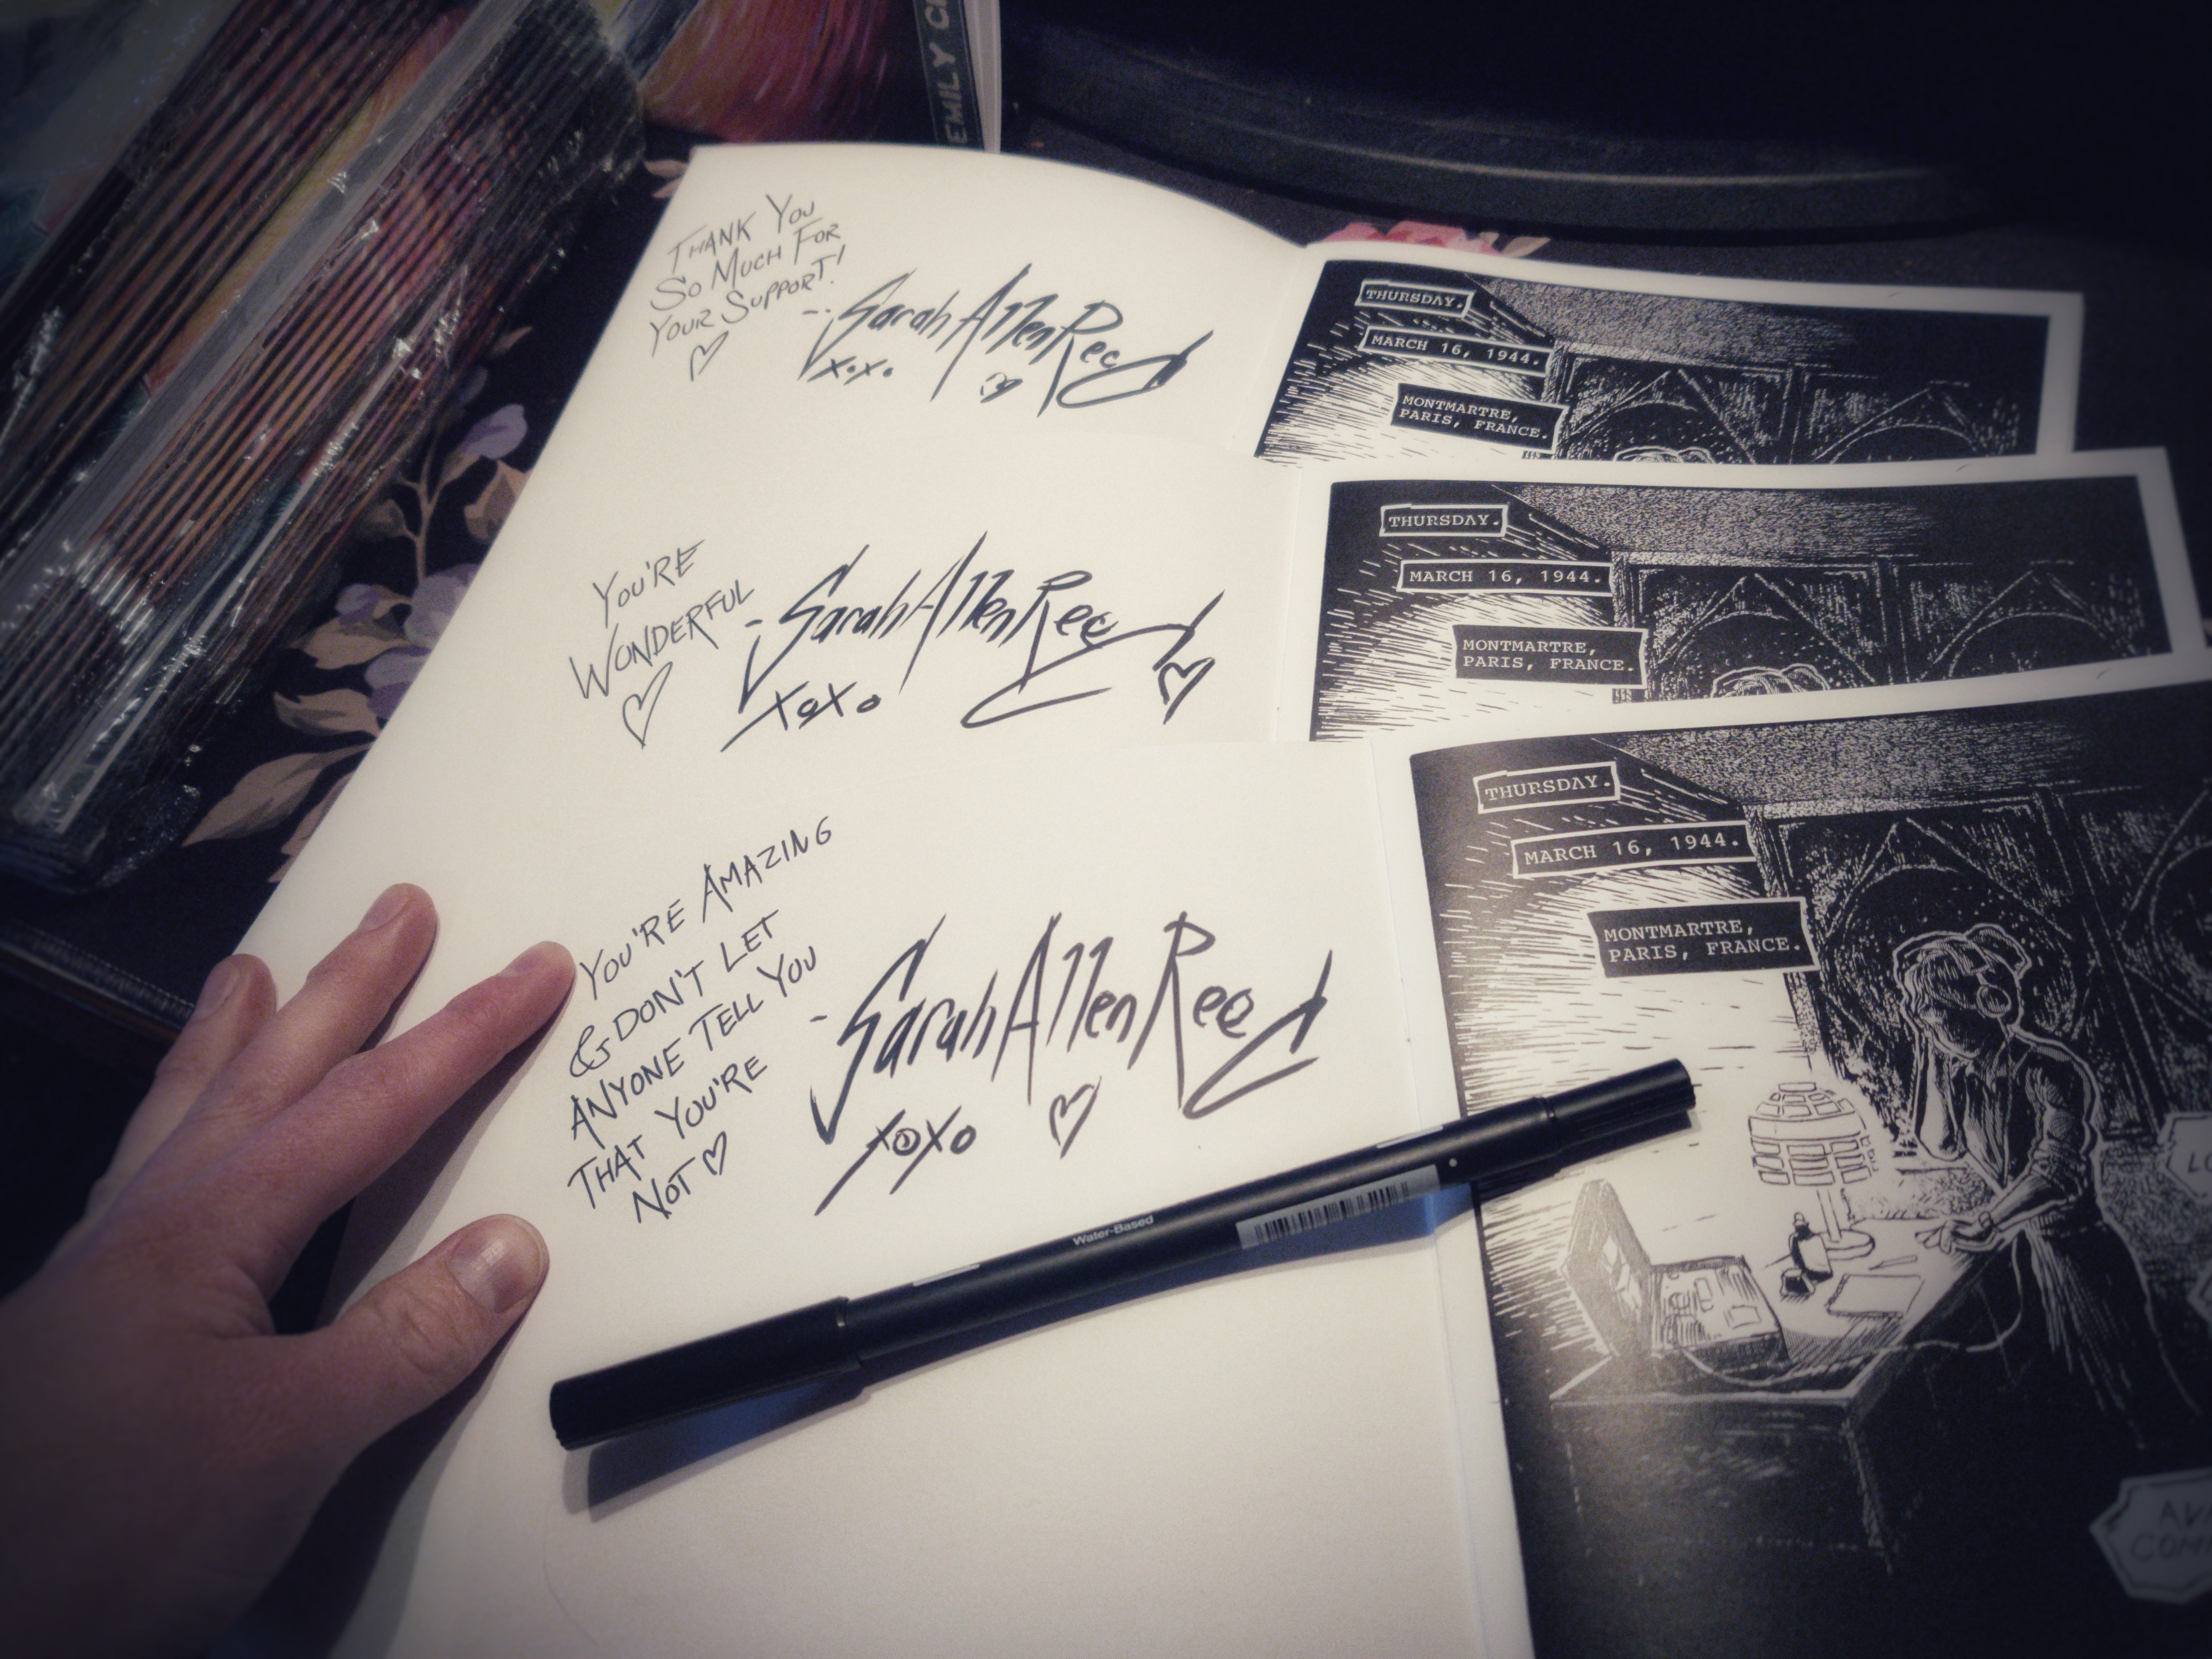 EMILY
THANK YOU
SO MUCH FOR
YOUR SUPPORT!
- Sarah Allen Reed
x.x.
THURSDAY.
MARCH 16, 1944.
MONTMARTRE,
PARIS, FRANCE.
YOU'RE
WONDERFUL
- Sarah Allen Reed
xoxo
THURSDAY.
MARCH 16, 1944.
MONTMARTRE,
PARIS, FRANCE.
YOU'RE AMAZING
& DON'T LET
ANYONE TELL YOU
THAT YOU'RE
NOT
- Sarah Allen Reed
xoxo
Water-Based
THURSDAY.
MARCH 16, 1944.
MONTMARTRE,
PARIS, FRANCE.